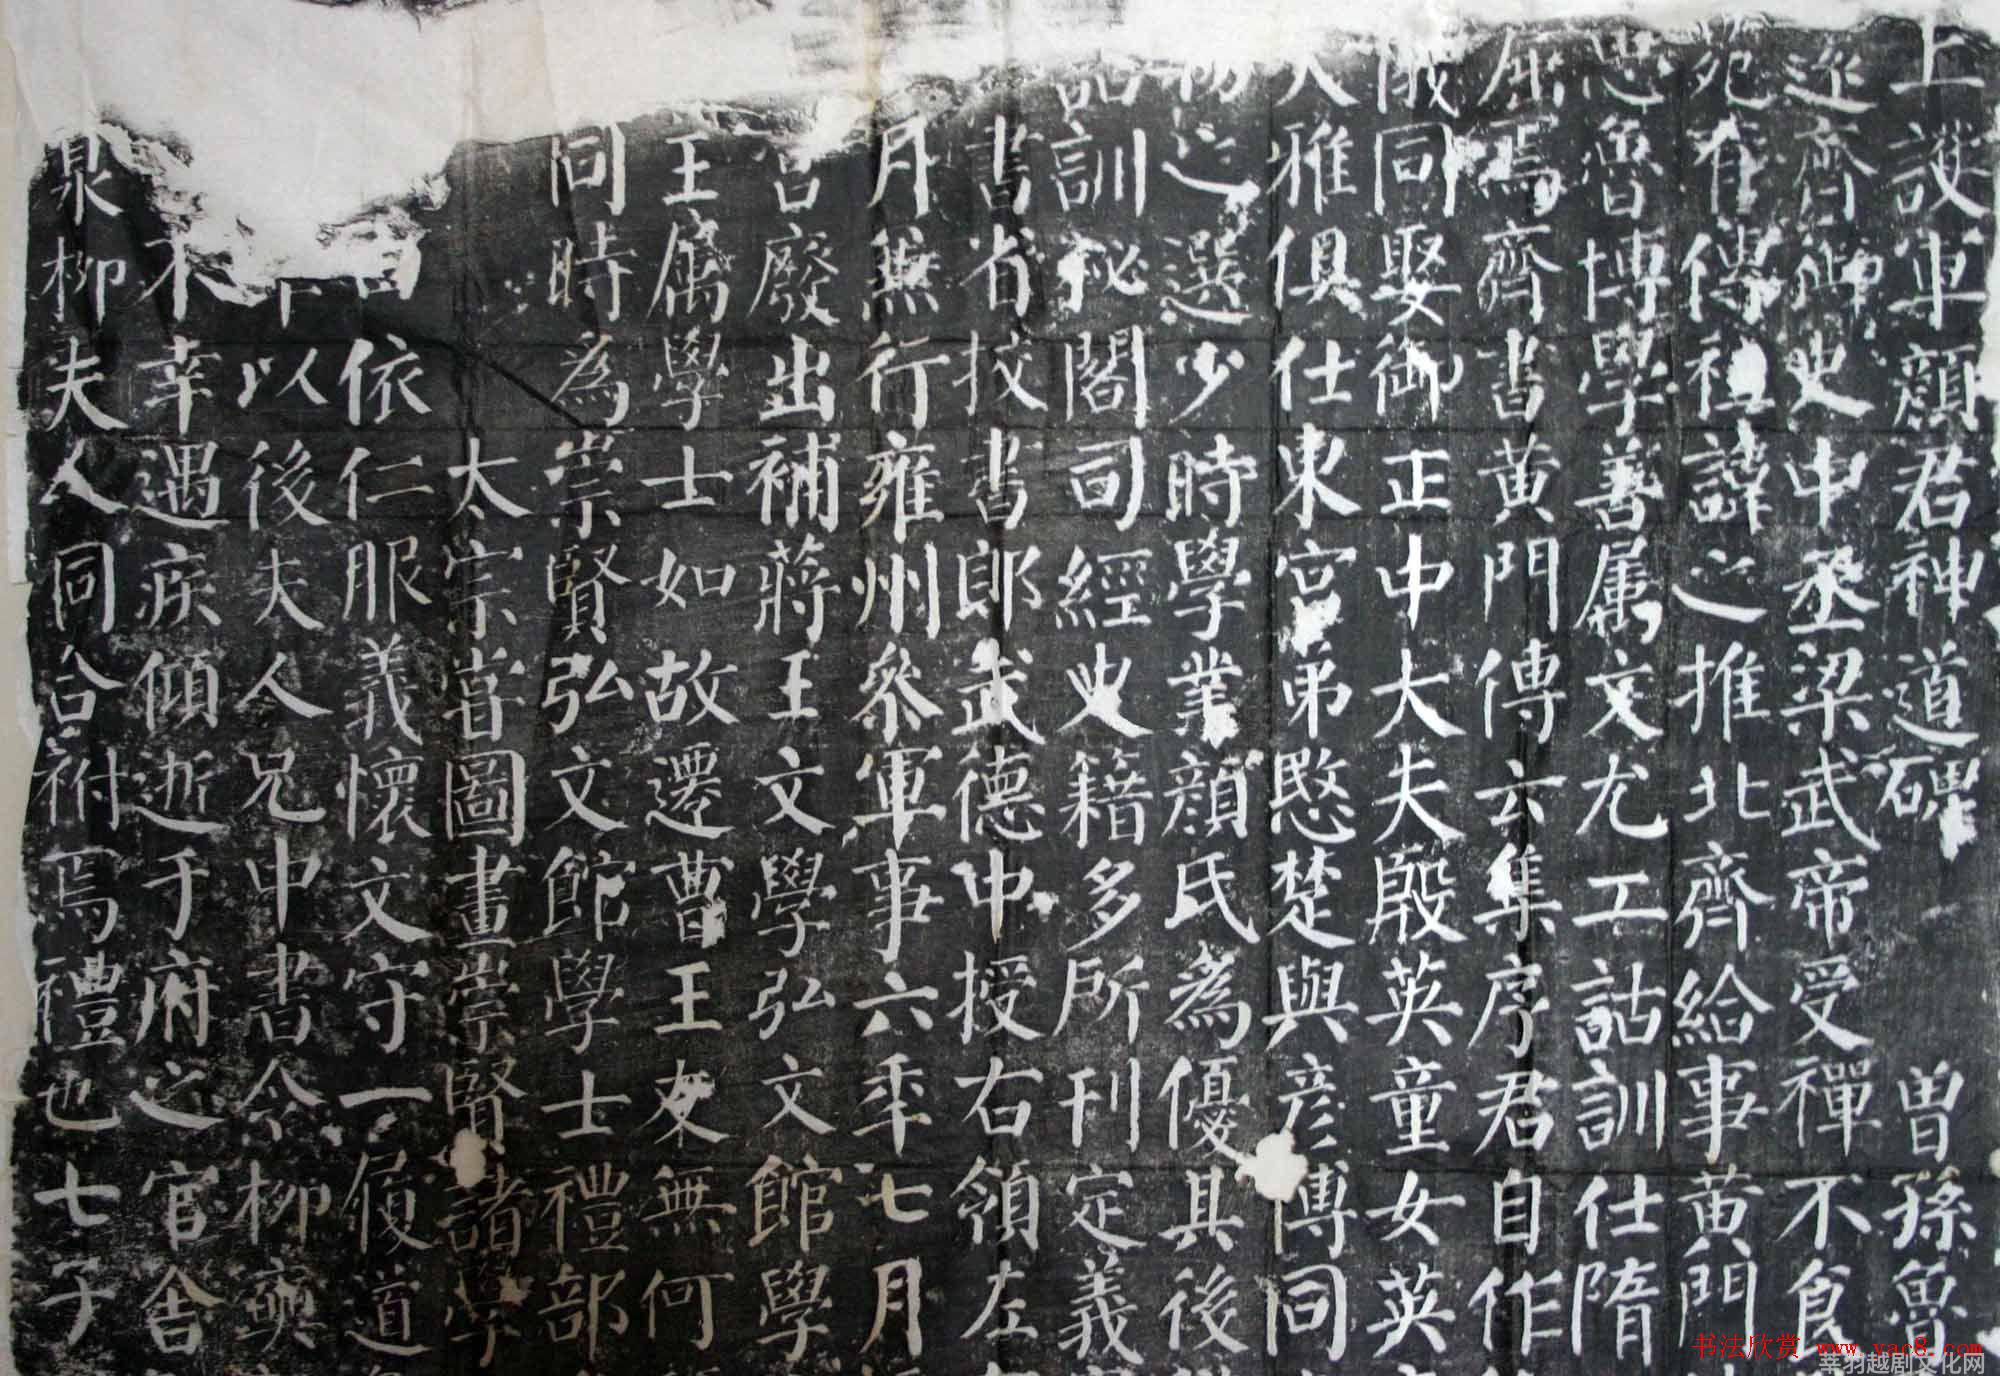 上護軍顏君神道碑 曾孫魯
逐齊御史中丞梁武帝受禪不食
苑有傳祖諱之推北齊給事黃門
思魯博學善屬文尤工詁訓仕隋
屈焉齊書黃門傳云集序君自作
儀同娶御正中大夫殷英童女英
大雅俱仕東宮弟愍楚與彥博同
務之選少時學業顏氏為優其後
詁訓秘閣司經史籍多所刊定義
書省挍書郎武德中授右領左
月兼行雍州參軍事六年七月
宮廢出補蔣王文學弘文館學
王屬學士如故遷曹王友無何
同時為崇賢弘文館學士禮部
太宗嘗圖畫崇賢諸學
依仁服義懷文守一履道
以後夫人兄中書令柳奭
不幸遇疾傾逝于府之官舍
泉柳夫人同合祔焉禮也七子
书法欣赏 www.yac8.com
莘羽越剧文化网